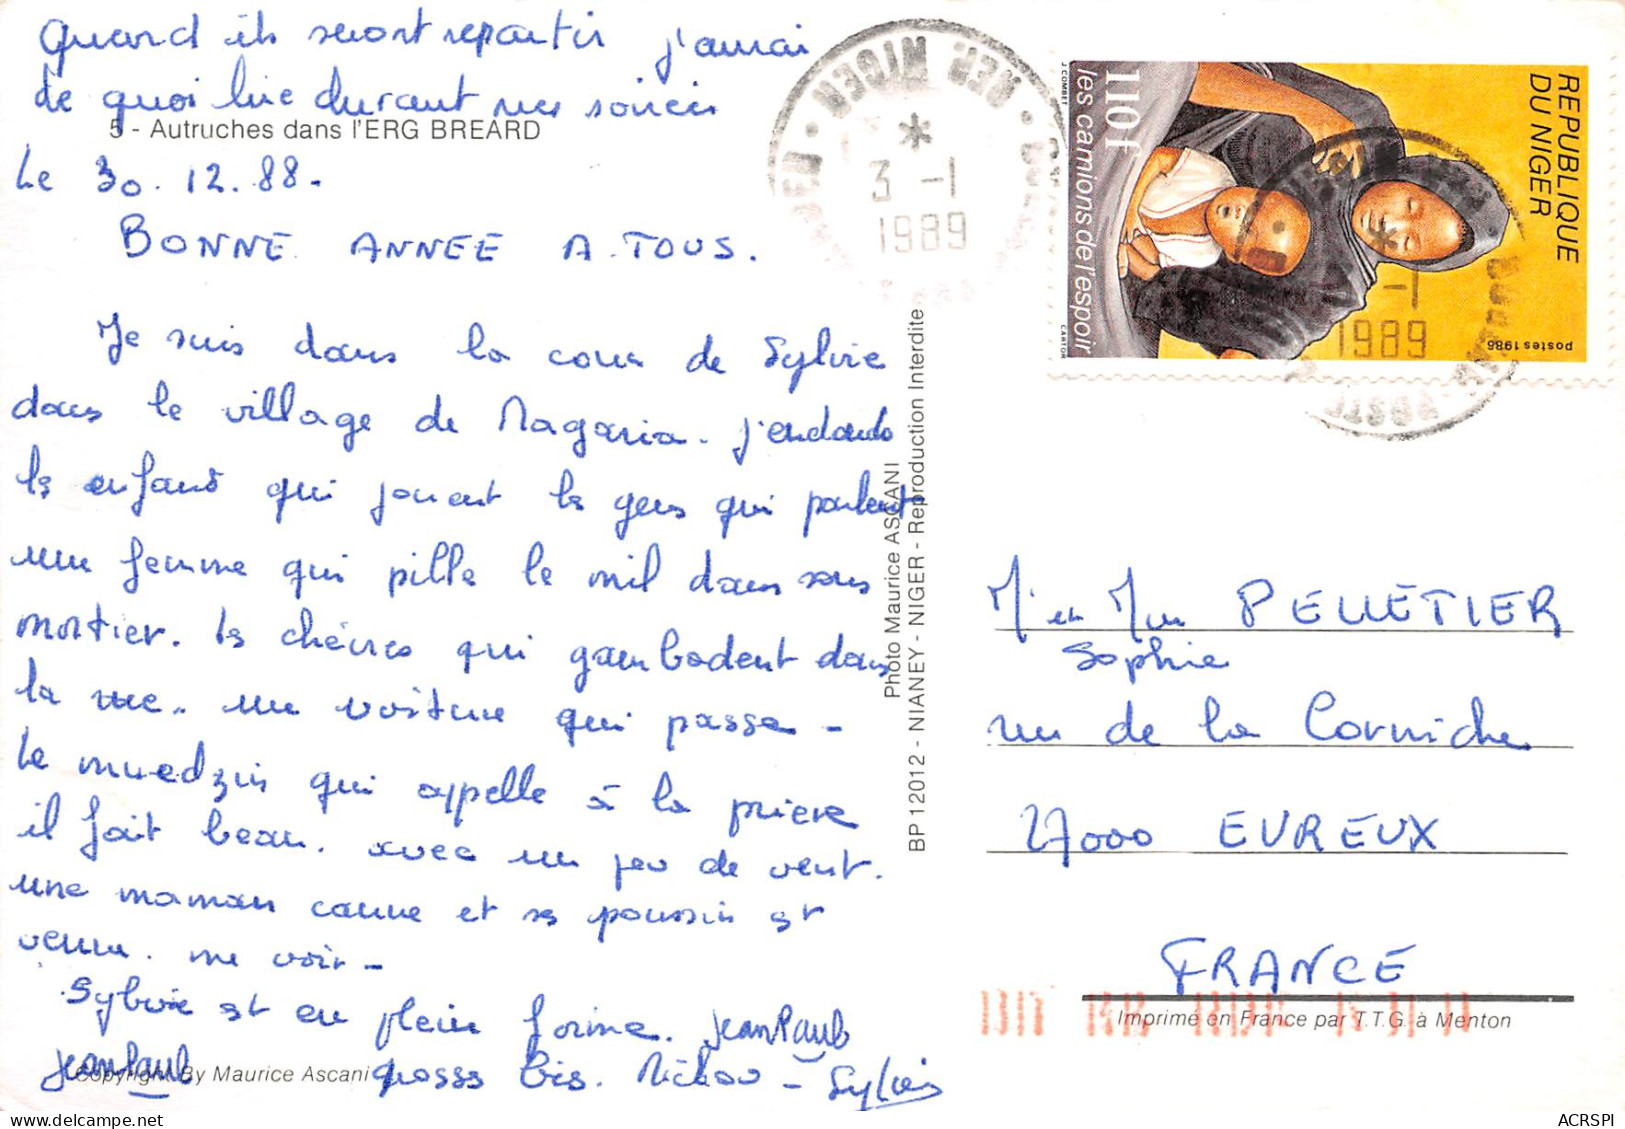 Quand ils seront repartir j'aurai
de quoi lire durant mes soirées
5 - Autruches dans l'ERG BREARD
Le 30.12.88.
BONNE ANNEE A TOUS.
Je suis dans la cour de Sylvie
dans le village de Magaria. J'entends
les enfants qui jouent les gens qui parlent
une femme qui pille le mil dans son
mortier. les chèvres qui gambadent dans
la rue. une voiture qui passe -
Le muedzin qui appelle à la prière
il fait beau. avec un peu de vent.
une maman canne et ses poussin est
venue. me voir -
Sylvie est en plein forme. Jean Paul
Jean Paul grosses bis. Michou - Sylvie
Copyright By Maurice Ascani
Photo Maurice ASCANI
BP 12012 - NIANEY - NIGER - Reproduction Interdite
NIGER
3 -1
1989
REPUBLIQUE
DU NIGER
110f
les camions de l'espoir
J.COMBET
CARTOR
postes 1986
-1
1989
M. et Mme PELLETIER
Sophie
rue de la Corniche
27000 EVREUX
FRANCE
Imprimé en France par T.T.G. à Menton
ACRSPI